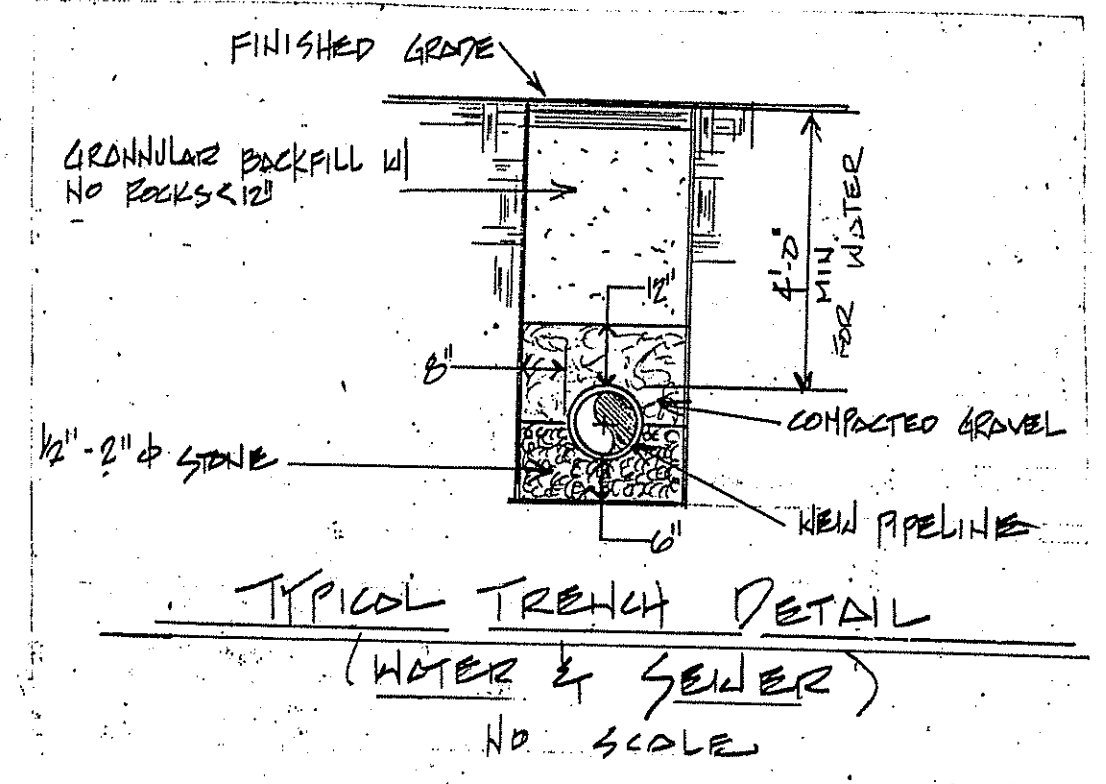 FINISHED GRADE
GRANNULAR BACKFILL W/
NO ROCKS < 12"
4'-0"
MIN
FOR WATER
12"
8"
COMPACTED GRAVEL
1/2" - 2" Φ STONE
NEW PIPELINE
6"
TYPICAL TRENCH DETAIL
(WATER & SEWER)
NO SCALE